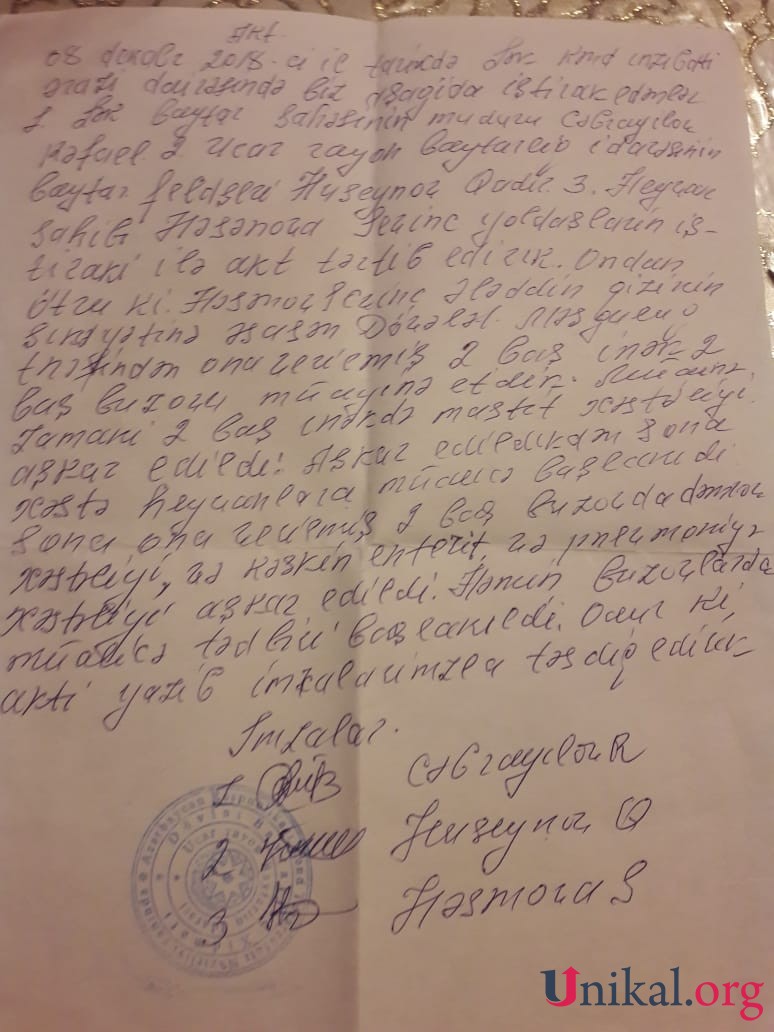 Akt.
08 dekabr 2018-ci il tarixdə Lək kənd inzibati
ərazi dairəsində biz aşağıda iştirak edənlər
1. Lək baytar sahəsinin müdürü Cəbrayılov
Rafael 2. Ucar rayon baytarlıq idarəsinin
baytar feldşeri Hüseynov Qadir. 3. Heyvan
sahibi Həsənova Sevinc yoldaşların iş-
tiraki ilə akt tərtib edirik. Ondan
ötru ki. Həsənova Sevinc Ələddin qizinin
şikayətinə əsasən Dövlət Məşğulluq
tərəfindən ona verilmiş 2 baş inək 2
baş buzovu müayinə etdik. Müayinə
zamani 2 baş inəkdə mastit xəstəliyi
aşkar edildi. Aşkar edildikdən sonra
xəstə heyvanlara müalicə başlanıldi
sonra ona verilmiş 2 baş buzovda
xəstəliyi, və kəskin enterit, və pnevmoniya
xəstəliyi aşkar edildi. Həmin buzovlarda
müalicə tədbiri başlanıldi. Odur ki,
akti yazıb imzalarımızla təsdiq edirik
İmzalar.
1 Cəbrayılov R
2 Hüseynov Q
3 Həsnova S
Unikal.org